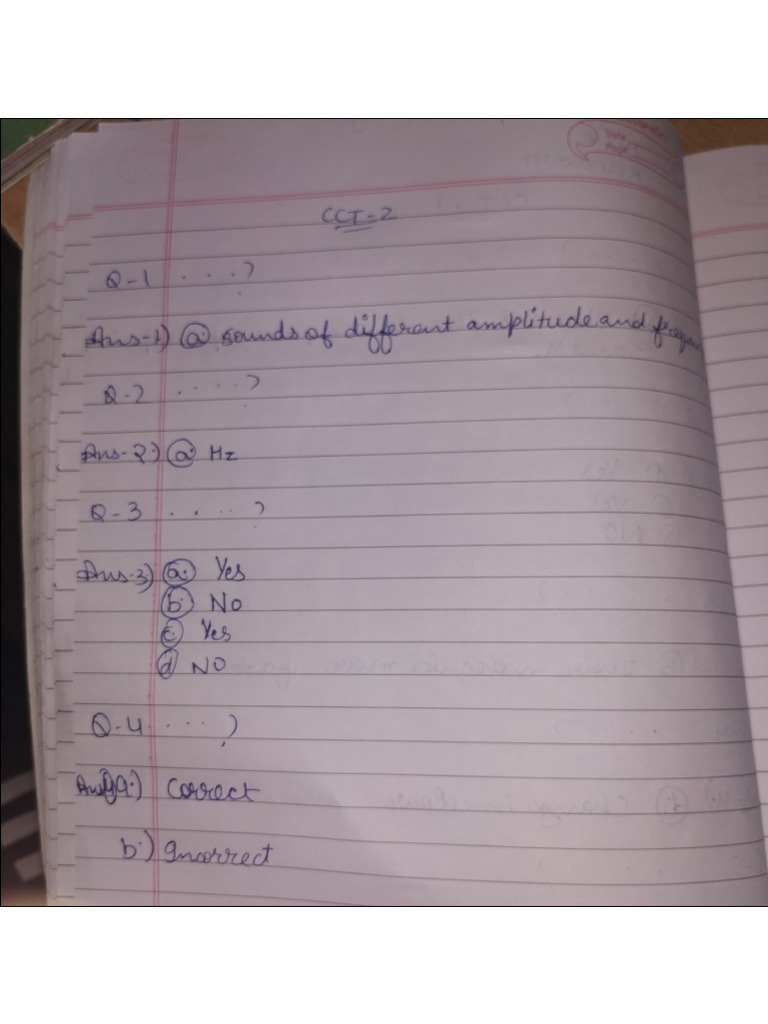 Date
Page
CCT-2
Q-1 . . . . ?
Ans-1) (a.) sounds of different amplitude and
Q-2 . . . . . ?
Ans-2.) (a.) Hz
Q-3 . . . . . ?
Ans-3) (a.) Yes
(b.) NO
(c) Yes
(d) NO
Q-4 . . . . ?
a.) Correct
b.) Incorrect